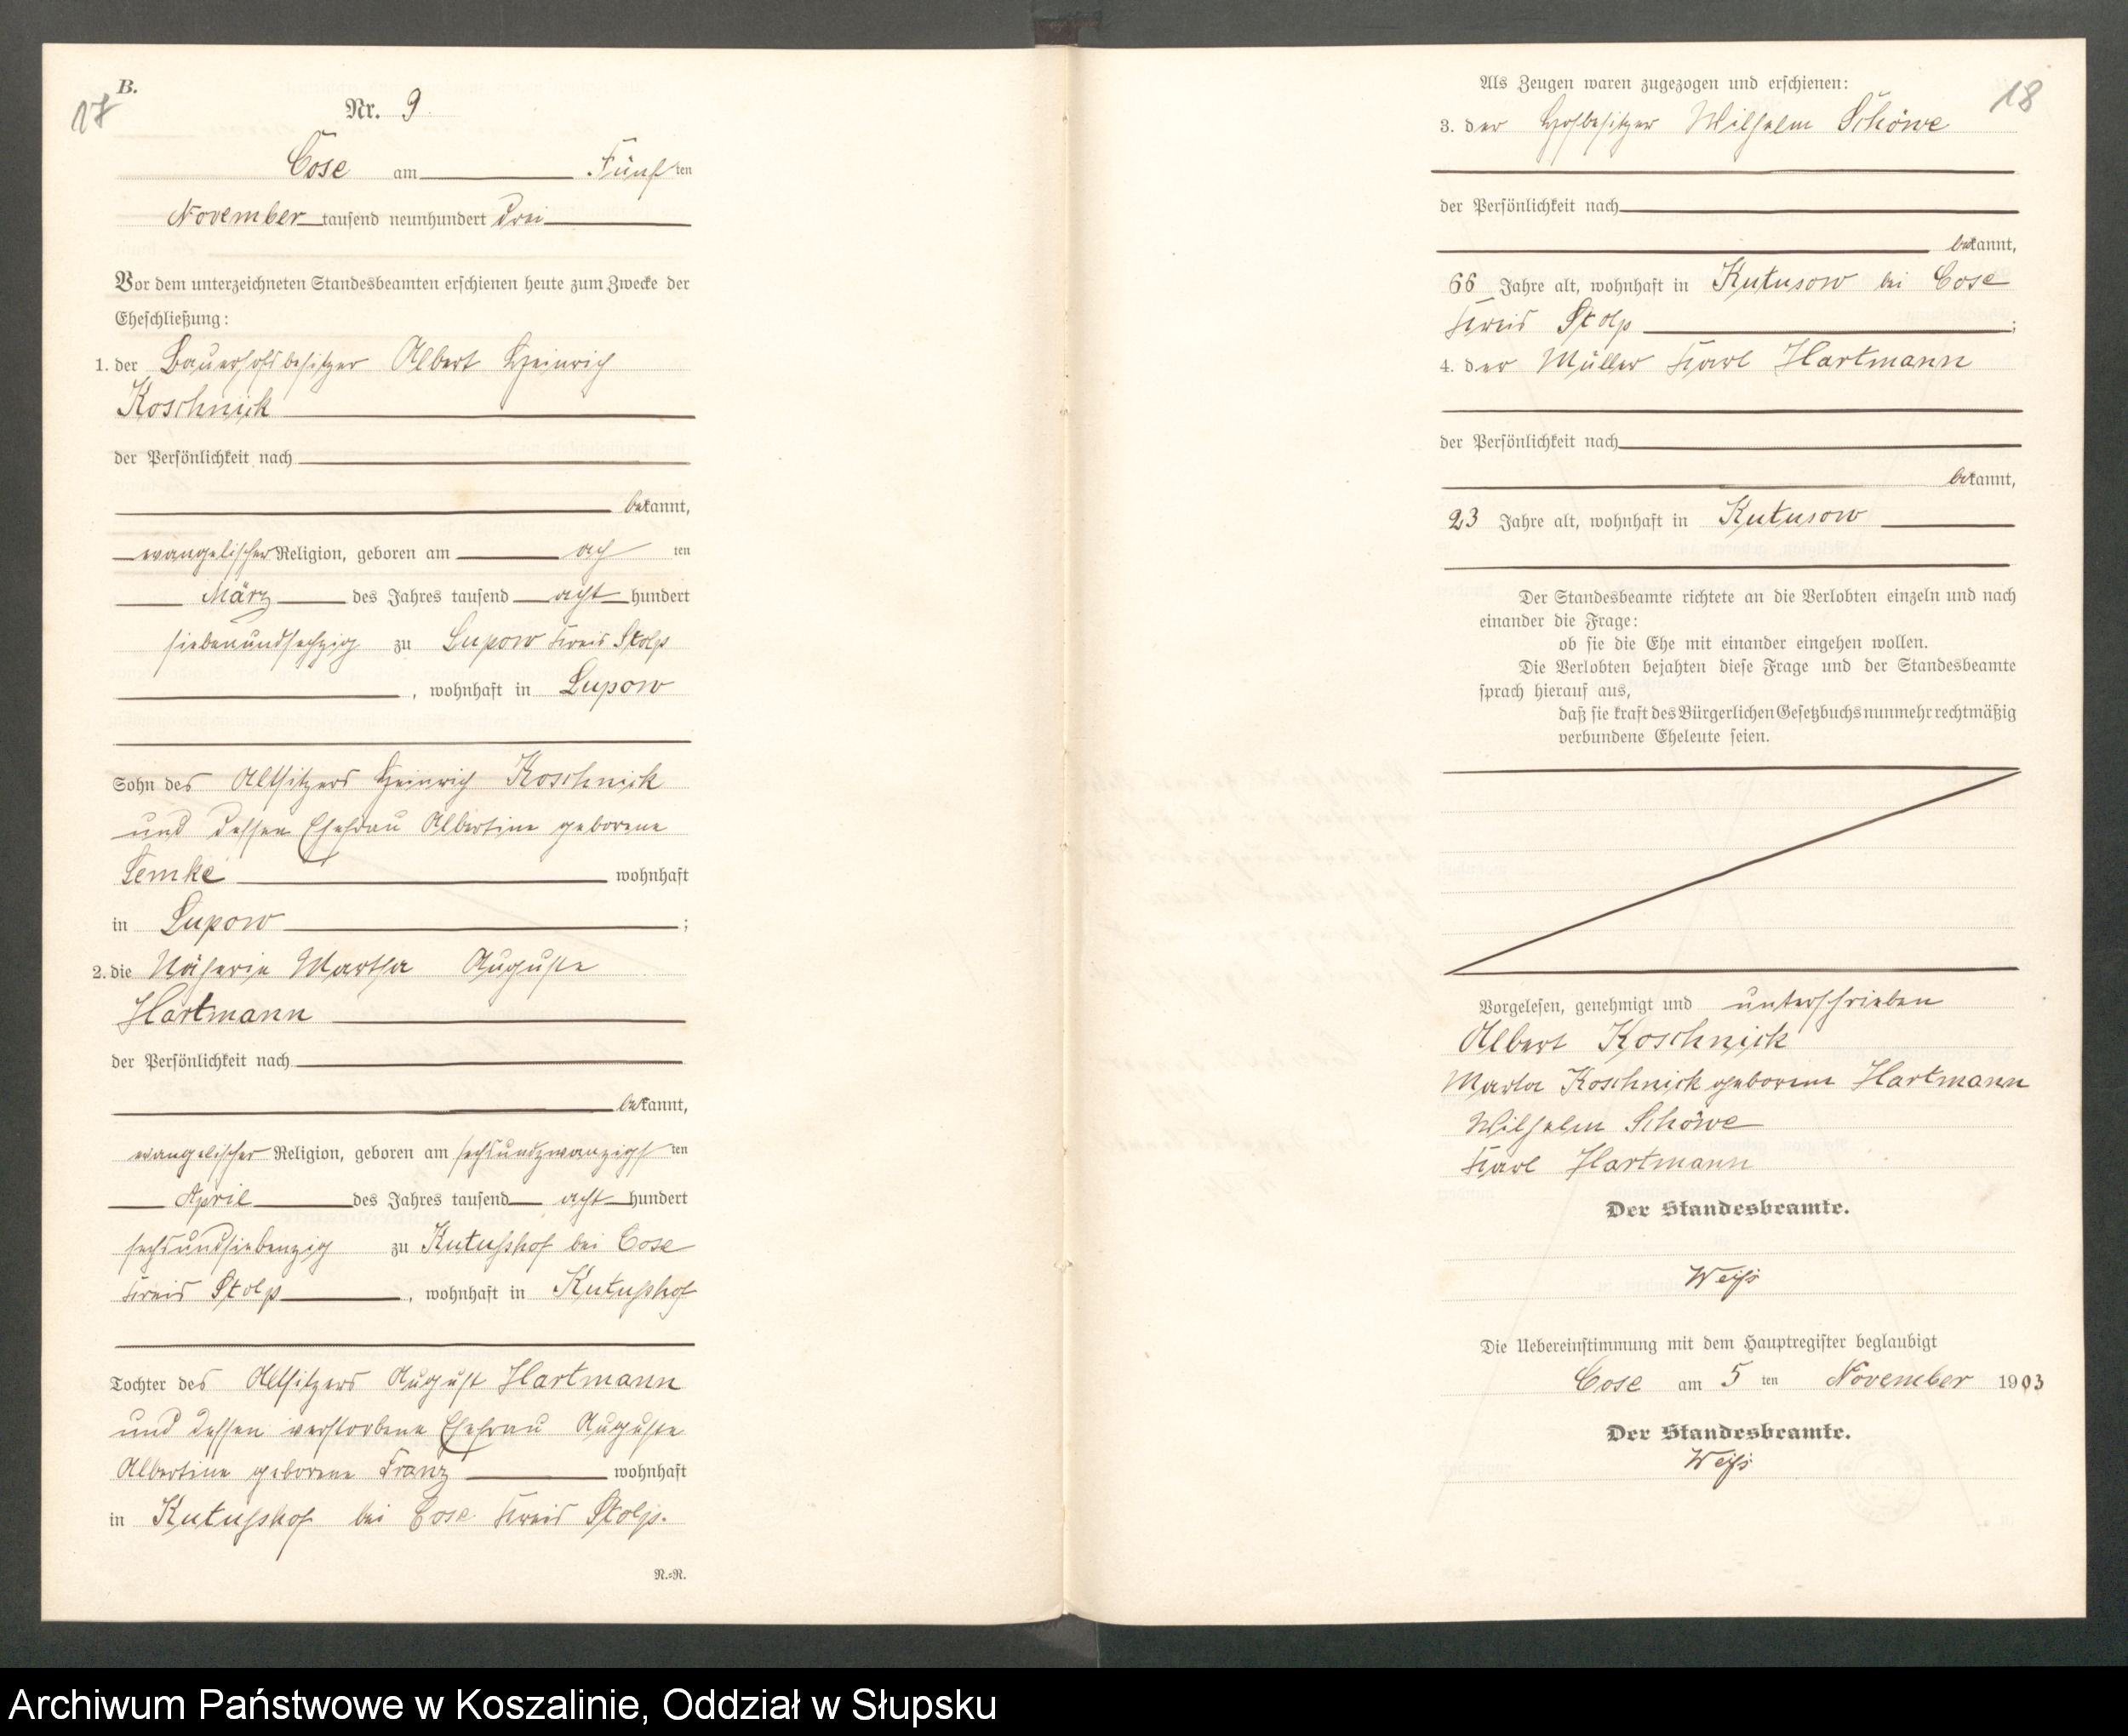 B.
17
Nr. 9
Cose am Fünften
November tausend neunhundert drei
Vor dem unterzeichneten Standesbeamten erschienen heute zum Zwecke der
Eheschließung:
1. der Bauerhofsbesitzer Albert Heinrich
Koschnick
der Persönlichkeit nach
bekannt,
evangelischer Religion, geboren am achten
März des Jahres tausend acht hundert
siebenundsechzig zu Lupow Kreis Stolp
, wohnhaft in Lupow
Sohn des Altsitzers Heinrich Koschnick
und dessen Ehefrau Albertine geborene
Lemke wohnhaft
in Lupow ;
2. die Näherin Martha Auguste
Hartmann
der Persönlichkeit nach
bekannt,
evangelischer Religion, geboren am sechsundzwanzigsten
April des Jahres tausend acht hundert
sechsundsiebenzig zu Kutusshof bei Cose
Kreis Stolp , wohnhaft in Kutusshof
Tochter des Altsitzers August Hartmann
und dessen verstorbene Ehefrau Auguste
Albertine geborene Franz wohnhaft
in Kutusshof bei Cose Kreis Stolp.
N.=R.
18
Als Zeugen waren zugezogen und erschienen:
3. der Hofbesitzer Wilhelm Schöwe
der Persönlichkeit nach
bekannt,
66 Jahre alt, wohnhaft in Kutusow bei Cose
Kreis Stolp ;
4. der Müller Karl Hartmann
der Persönlichkeit nach
bekannt,
23 Jahre alt, wohnhaft in Kutusow
Der Standesbeamte richtete an die Verlobten einzeln und nach
einander die Frage:
ob sie die Ehe mit einander eingehen wollen.
Die Verlobten bejahten diese Frage und der Standesbeamte
sprach hierauf aus,
daß sie kraft des Bürgerlichen Gesetzbuchs nunmehr rechtmäßig
verbundene Eheleute seien.
Vorgelesen, genehmigt und unterschrieben
Albert Koschnick
Marta Koschnick geborene Hartmann
Wilhelm Schöwe
Karl Hartmann
Der Standesbeamte.
Weiß
Die Uebereinstimmung mit dem Hauptregister beglaubigt
Cose am 5 ten November 1903
Der Standesbeamte.
Weiß
Archiwum Państwowe w Koszalinie, Oddział w Słupsku